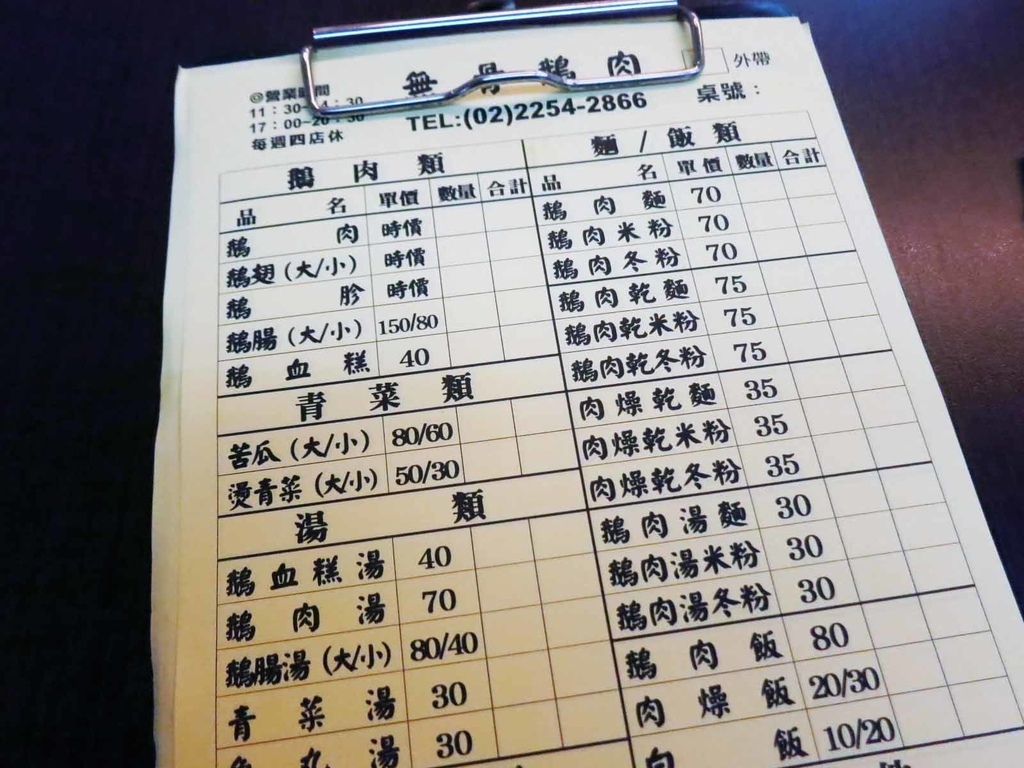 無骨鵝肉
外帶
@營業時間
11:30-14:30
17:00-20:30
每週四店休
TEL:(02)2254-2866
桌號:
鵝肉類
品名 單價 數量 合計
鵝肉 時價
鵝翅(大/小) 時價
鵝胗 時價
鵝腸(大/小) 150/80
鵝血糕 40
青菜類
苦瓜(大/小) 80/60
燙青菜(大/小) 50/30
湯類
鵝血糕湯 40
鵝肉湯 70
鵝腸湯(大/小) 80/40
青菜湯 30
魚丸湯 30
麵/飯類
品名 單價 數量 合計
鵝肉麵 70
鵝肉米粉 70
鵝肉冬粉 70
鵝肉乾麵 75
鵝肉乾米粉 75
鵝肉乾冬粉 75
肉燥乾麵 35
肉燥乾米粉 35
肉燥乾冬粉 35
鵝肉湯麵 30
鵝肉湯米粉 30
鵝肉湯冬粉 30
鵝肉飯 80
肉燥飯 20/30
白飯 10/20